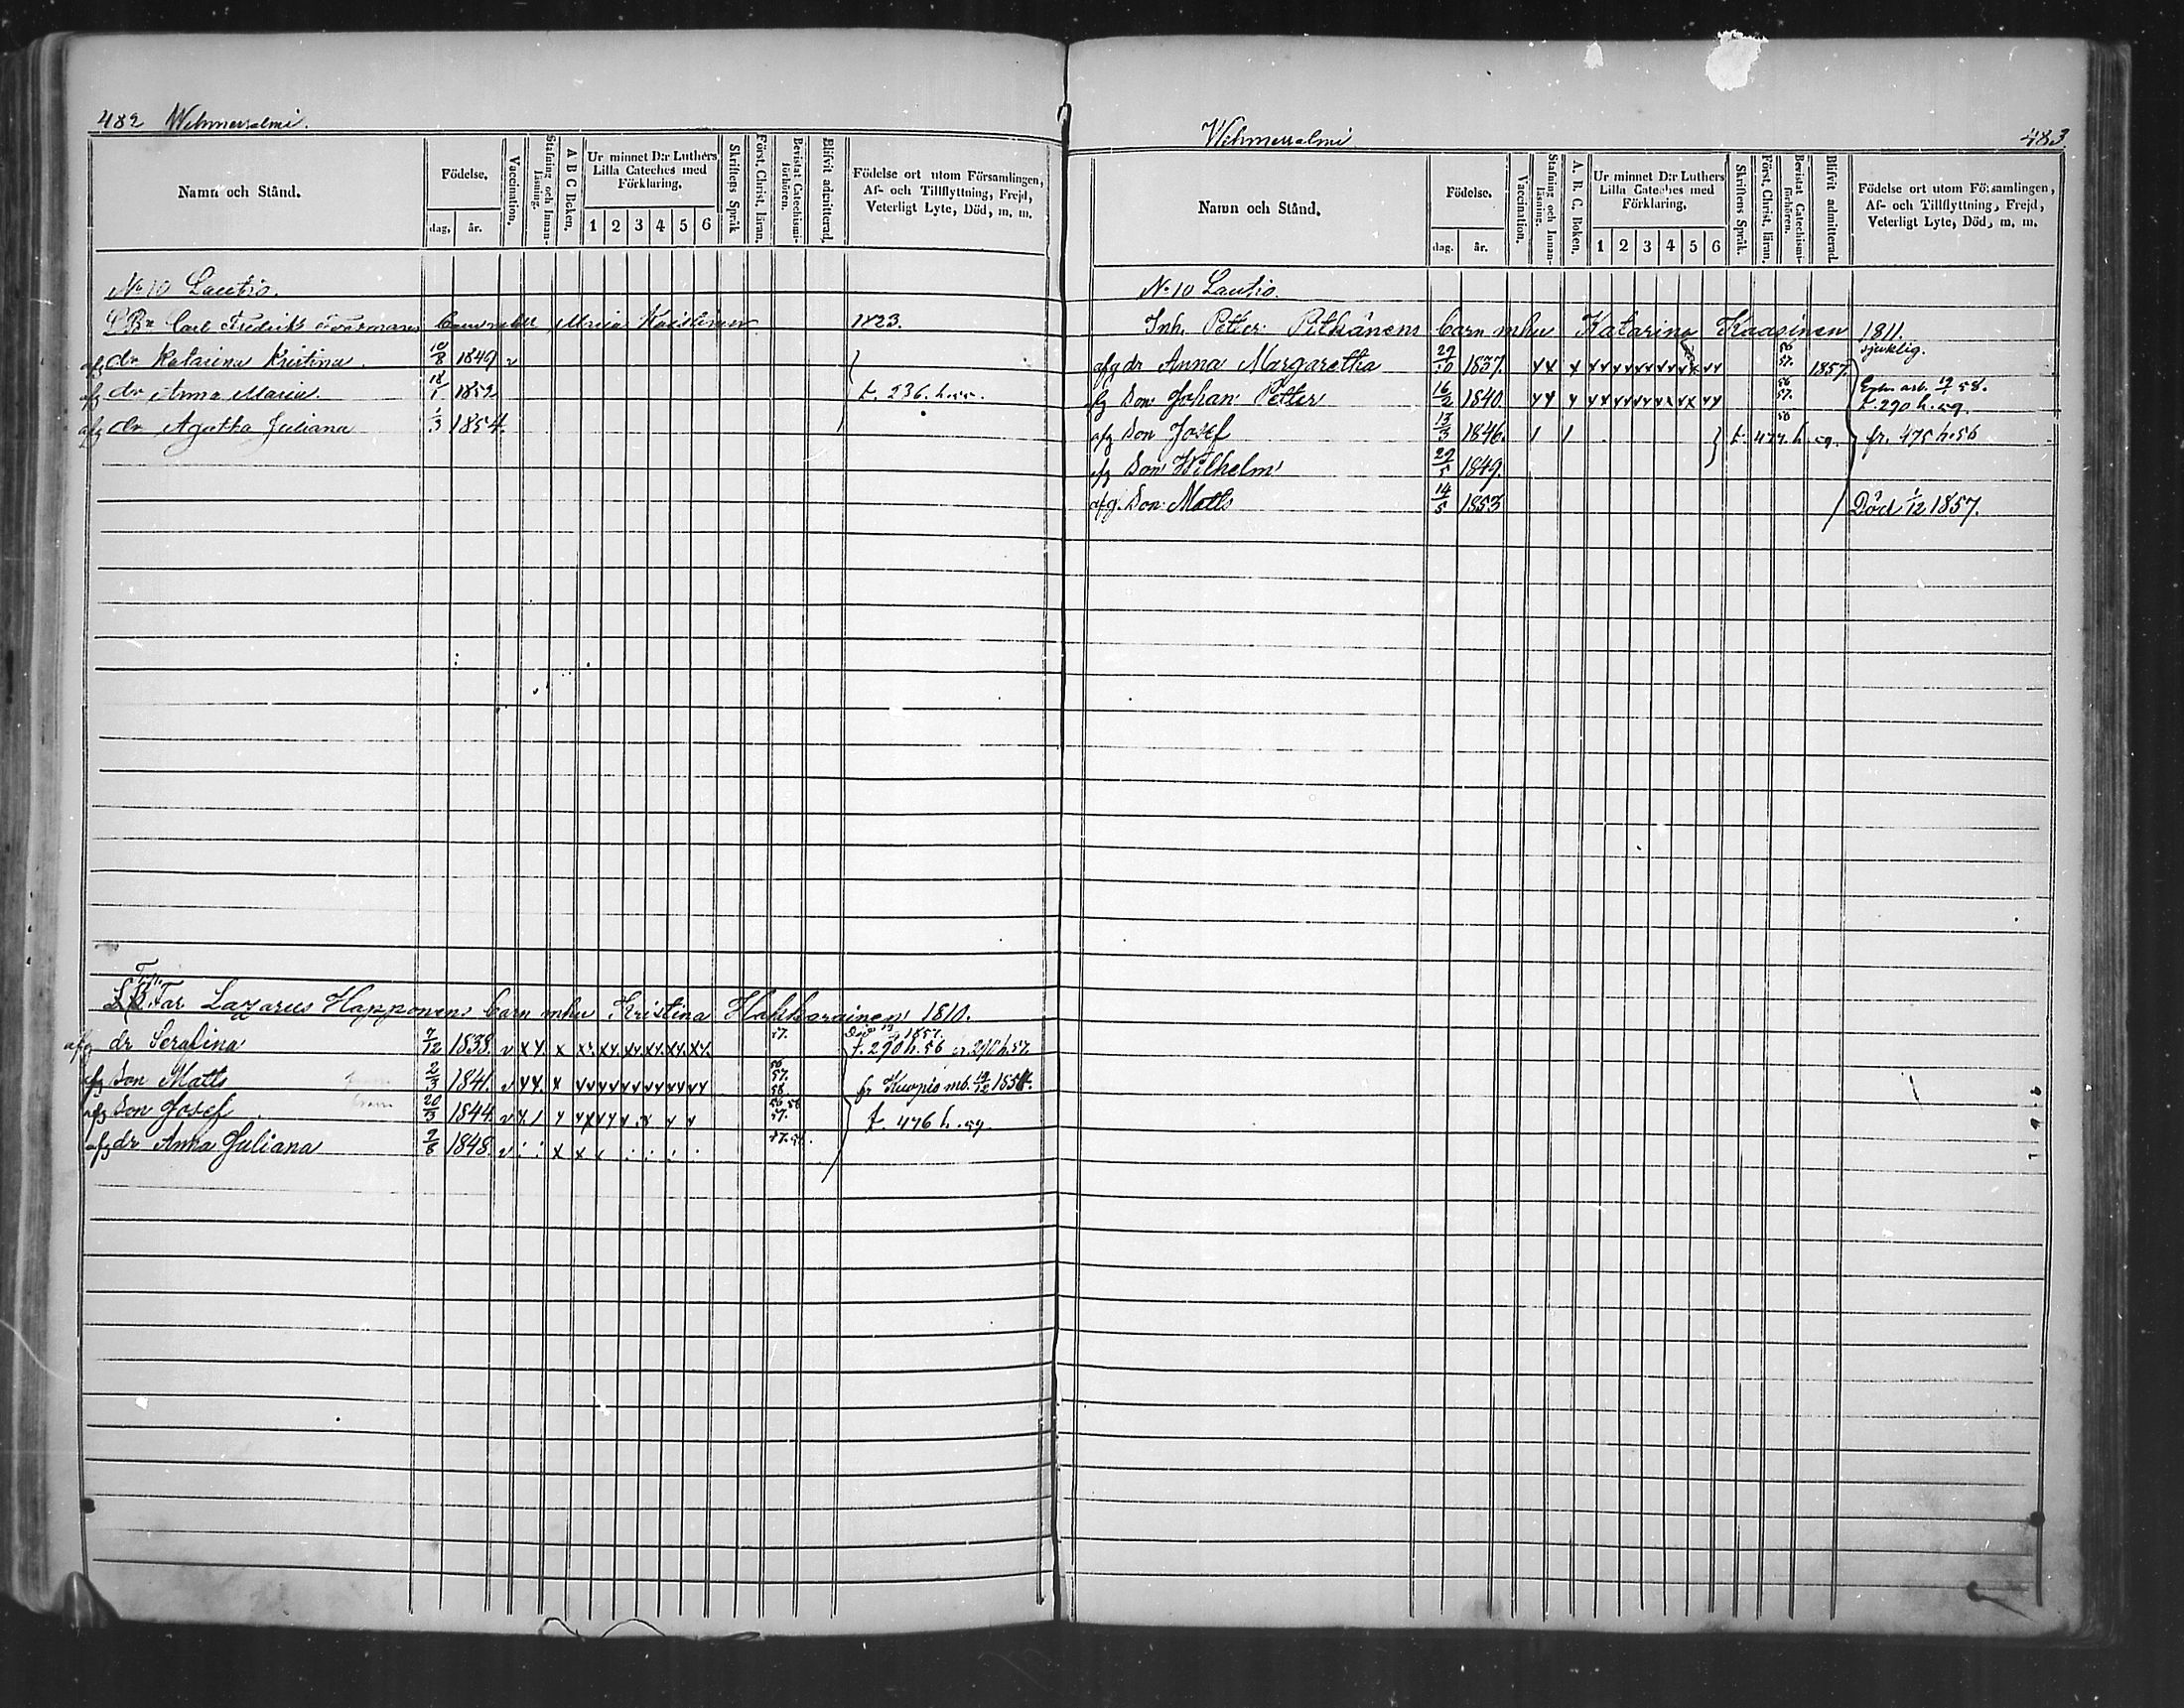 482 Wehmersalmi.
Namn och Stånd.
Födelse.
dag.
år.
Vaccination.
Stafning och Innan-
läsning.
A B C Boken.
Ur minnet D:r Luthers
Lilla Cateches med
Förklaring.
1 2 3 4 5 6
Skriftens Språk
Först. Christ. läran.
Bevistat Catechismi-
förhören.
Blifvit admitterad.
Födelse ort utom Församlingen,
Af- och Tillflyttning, Frejd,
Veterligt Lyte, Död, m. m.
No 10 Lautio.
Carl Fredrik barn mhu Maria 1823.
afg dr Katarina Kristina 10/8 1849 v
afg dr Anna Maria 18/1 1852 t. 236. h. 55.
afg dr Agatha Juliana 1/3 1854.
Far Lazarus Happonens barn mhu Kristina Hakkarainen 1810.
afg dr Serafina 7/12 1838. v x x x x x x x x x x 57. t. 290 h. 56 fr 290 h. 57.
afg Son Matts 2/3 1841. v x x x 56 57. 58 fr Kuopio mb. 19/12 185
afg Son Josef 20/3 1844. v x 1 57. t. 476 h. 59.
afg dr Anna Juliana 9/6 1848. v x x
Wehmersalmi 483
Namn och Stånd.
Födelse.
dag.
år.
Vaccination.
Stafning och Innan-
läsning.
A. B. C. Boken.
Ur minnet D:r Luthers
Lilla Cateches med
Förklaring.
1 2 3 4 5 6
Skriftens Språk.
Först. Christ. läran.
Bevistat Catechismi-
förhören.
Blifvit admitterad.
Födelse ort utom Församlingen,
Af- och Tillflyttning, Frejd,
Veterligt Lyte, Död, m. m.
No 10 Lautio.
Inh. Petter Pitkänens barn mhu Katarina Kaasinen 1811.
sjuklig.
afg dr Anna Margaretha 29/10 1837. x x x 56 57. 1857.
fg Son Johan Petter 16/2 1840. x x x 56 57. 58 t. 290 h. 59.
afg Son Josef 13/3 1846. 1 1 t. 477 h. 59. fr. 475 h. 56
afg Son Wilhelm 29/5 1849.
afg. Son Matts 14/5 1853 Död 1/12 1857.